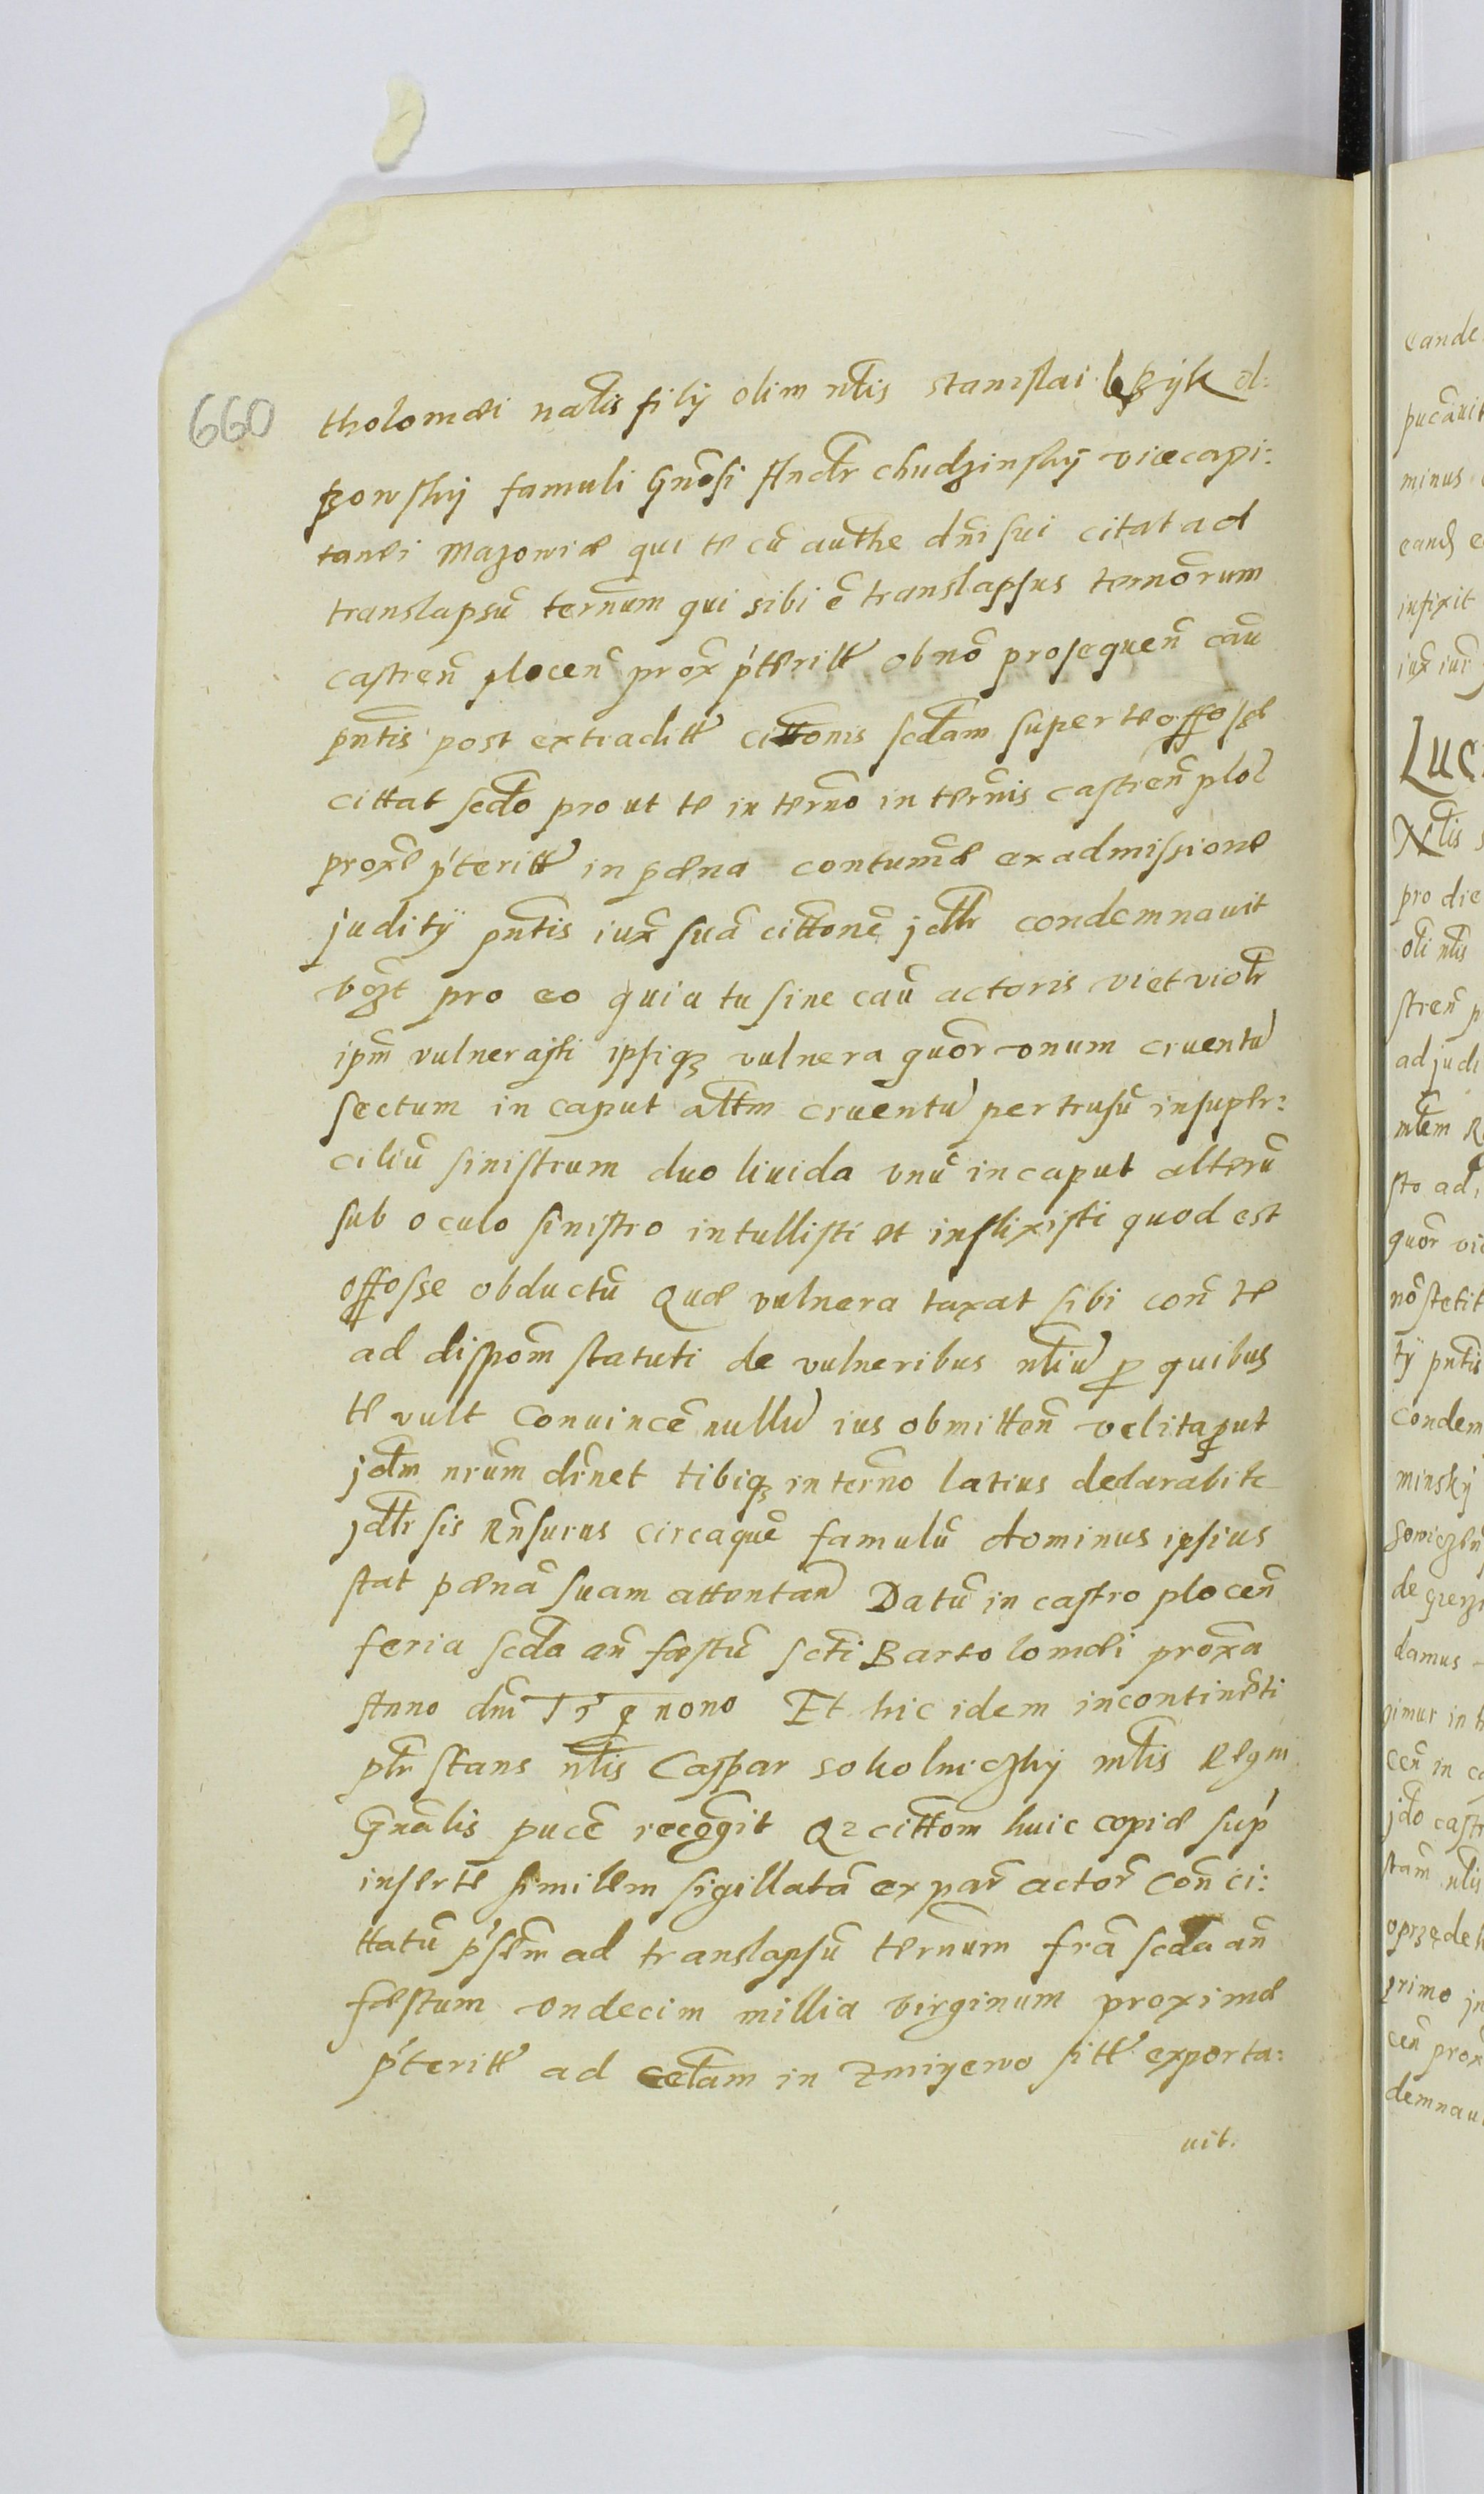 660
tholomæi natis filij olim ntis Stanislai d:
powskij famuli Gnosi Andr chudzinskij vicecapi:
tanei Mazowiæ qui te cũ authe dni sui citat ad
translapsũ ternum qui sibi ẽ translapsus ternorum
castreñ plocen prox pteritt ob nõ prosequeñ cau
pntis post extraditt cittonis scdam super te offosse
cittat scdo prout te in terno in ternis castreñ ploc
proxe pteritt in pæna contumæ ex admissione
juditÿ pntis iux suã cittonẽ jdtr condemnavit
pro eo quia tu sine cau actoris viet violtr
ipm vulnerasti ipsiqz vulnera quor vnum cruentũ
sectum in caput altm cruentũ pertrusũ in super:
ciliũ sinistrum duo livida vnũ in caput alterũ
sub oculo sinistro intullisti et inflixisti quod est
offosse obductũ Quæ vulnera taxat sibi con te
ad dispom statuti de vulneribus ntiũ p quibus
te vult convincẽ nullũ ius obmitteñ velitaput
jdm nrum dinet tibiqz in terno latius declarabit
jdtr sis Rñsurus circa quẽ famulũ dominus ipsius
stat pænã suam attentañ Datũ in castro ploceñ
feria scda añ fæstũ scti Bartolomæi proxa
Anno dni nono Et hic idem incontinẽti
ptr stans ntis Caspar Sokolniczky mtis Regni
Gnalis pucẽ recogit Qz cittom huic copiæ sup
inserte similem sigillatã ex par actor con ci:
ttatũ psem ad translapsũ ternum frã scda añ
fæstum vndecim millia virginum proximæ
pteritt ad in Zmiyewo sitt exporta:
uit.
cande
pucavit
minus
eand
infixit
iux iur
Luc
Ntis
pro die
oli ntis
streñ p
ad judi
mtem R
sto adi
quor
nõ stetit
tÿ pntis
condem
minsky
damus
ceñ in ca
jdo castr
stam ntis
primo in
ceñ prox
demnau